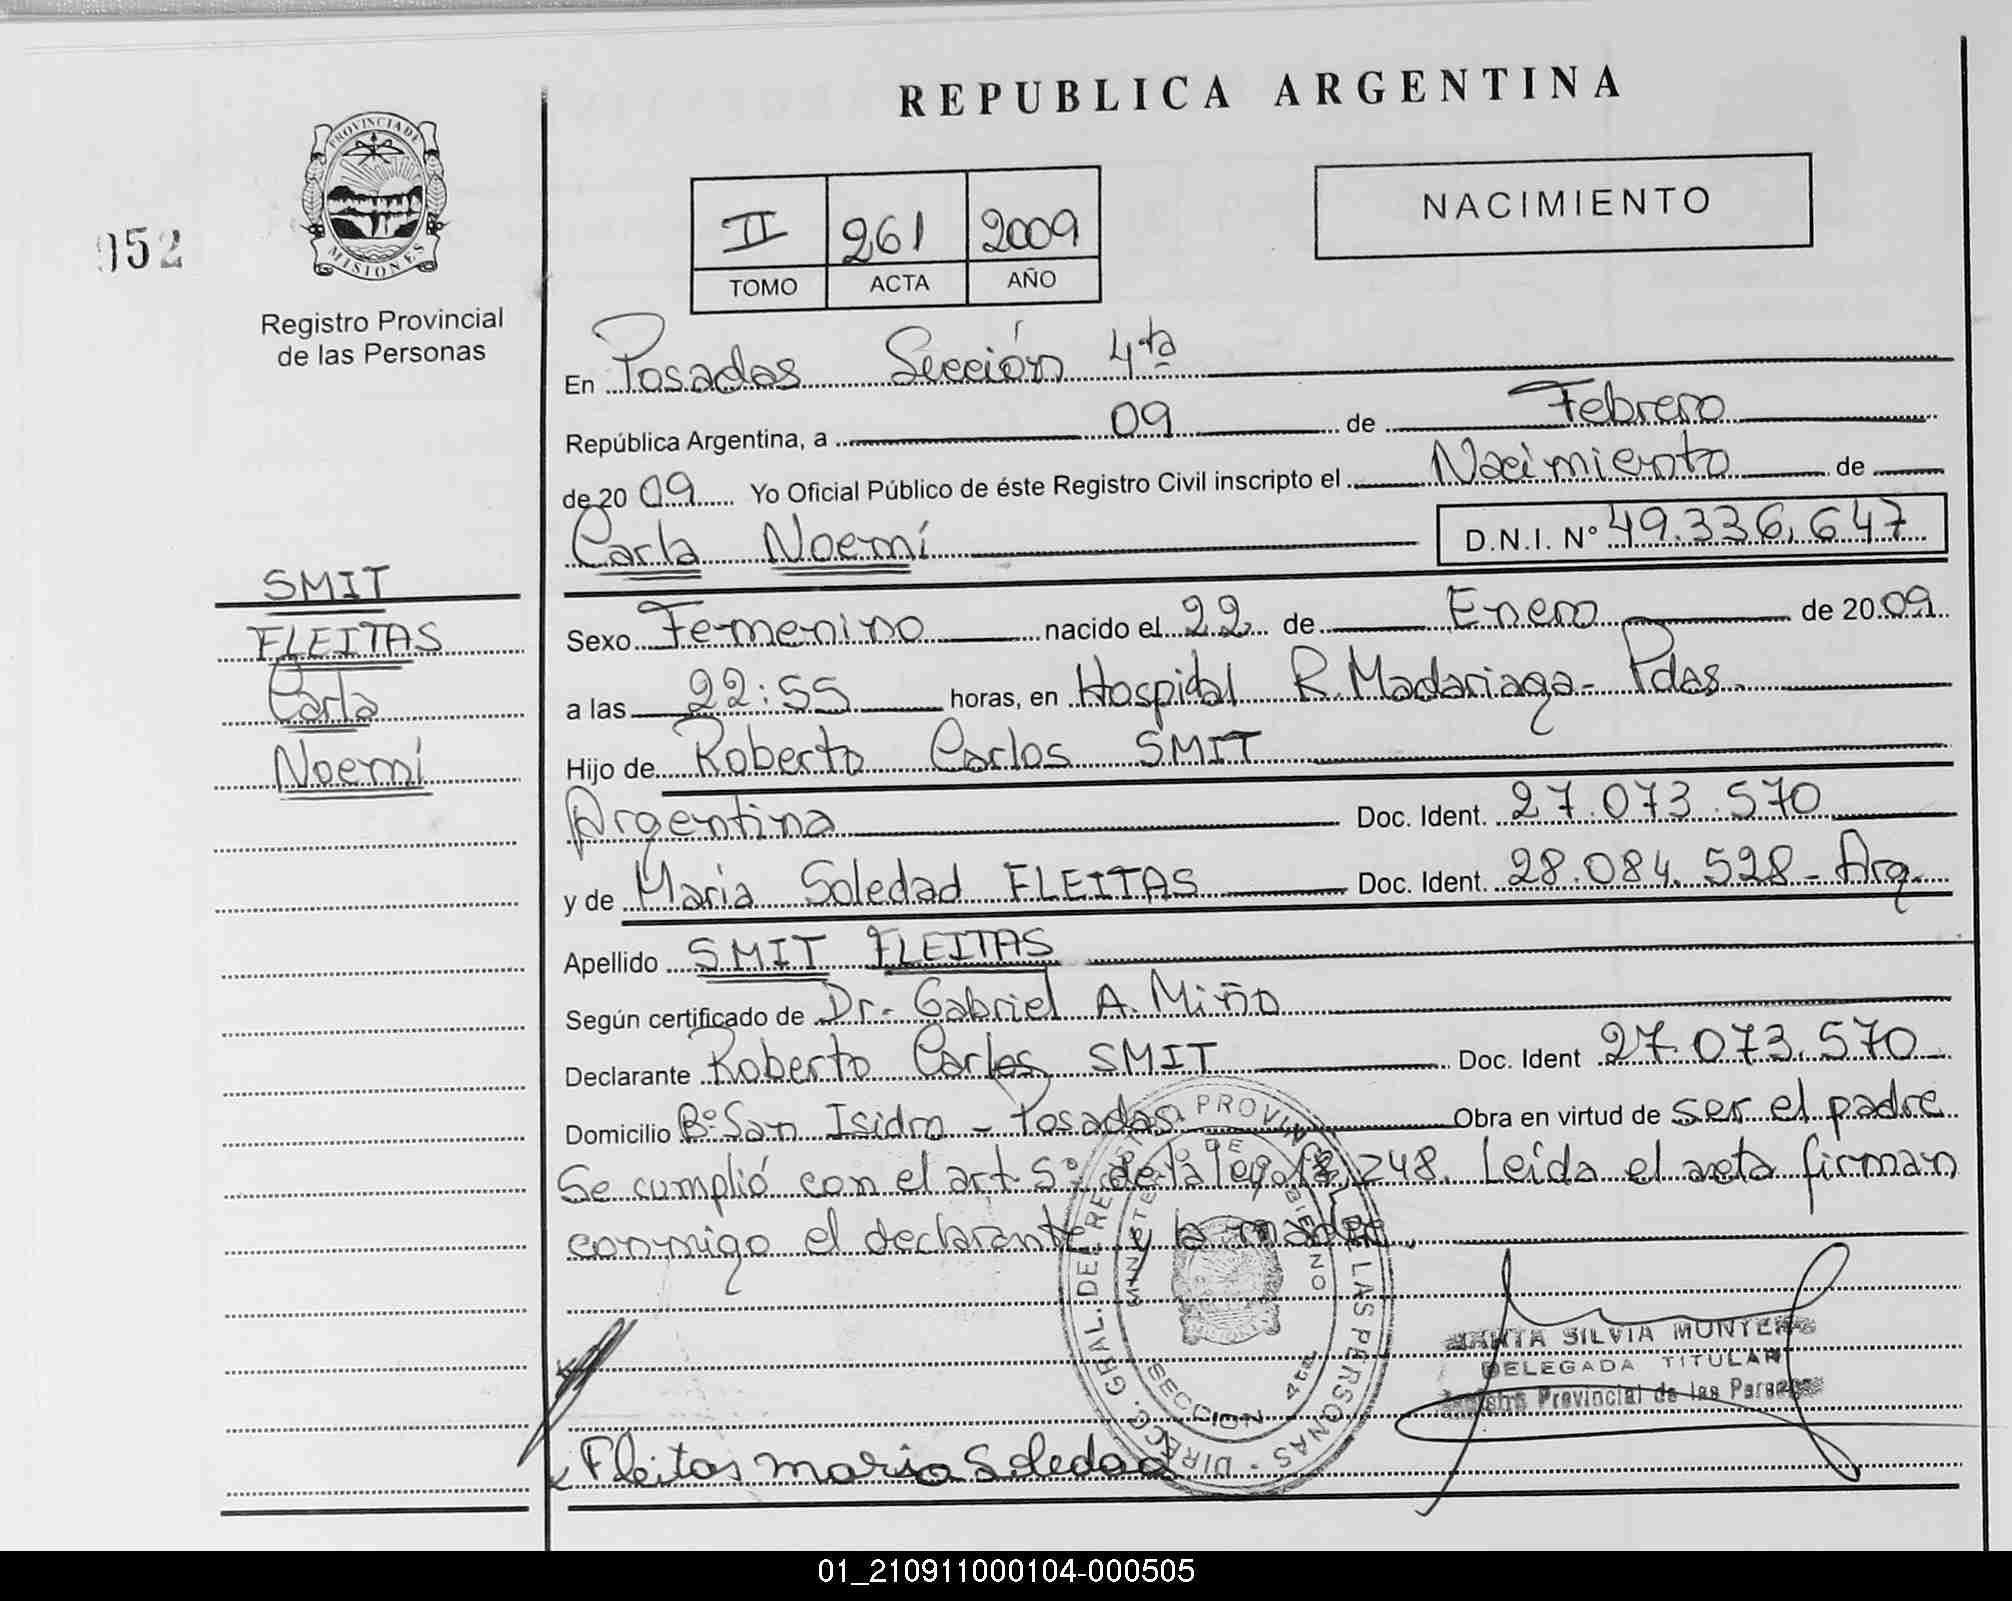 REPUBLICA ARGENTINA
PROVINCIA DE
MISIONES
952
Registro Provincial
de las Personas
II 261 2009
TOMO ACTA AÑO
NACIMIENTO
En Posadas Sección 4ta
República Argentina, a 09 de Febrero
de 2009 Yo Oficial Público de éste Registro Civil inscripto el Nacimiento de
Carla Noemí D.N.I. Nº 49.336.647
SMIT
FLEITAS
Carla
Noemí
Sexo Femenino nacido el 22 de Enero de 2009
a las 22:55 horas, en Hospital R. Madariaga - Pdas.
Hijo de Roberto Carlos SMIT
Argentina Doc. Ident. 27.073.570
y de Maria Soledad FLEITAS Doc. Ident. 28.084.528 - Arg.
Apellido SMIT FLEITAS
Según certificado de Dr. Gabriel A. Miño
Declarante Roberto Carlos SMIT Doc. Ident 27.073.570
Domicilio Bº San Isidro - Posadas. Obra en virtud de ser el padre
Se cumplió con el art. 5º de la ley 18.248. Leída el acta firman
conmigo el declarante y la madre.
DIRECC. GRAL. DEL REGISTRO PROVINCIAL DE LAS PERSONAS
MINISTERIO DE GOBIERNO
MISIONES
SECCION 4ta
SILVIA MONTERO
DELEGADA TITULAR
Registro Provincial de las Personas
Fleitas maria Soledad
01_210911000104-000505